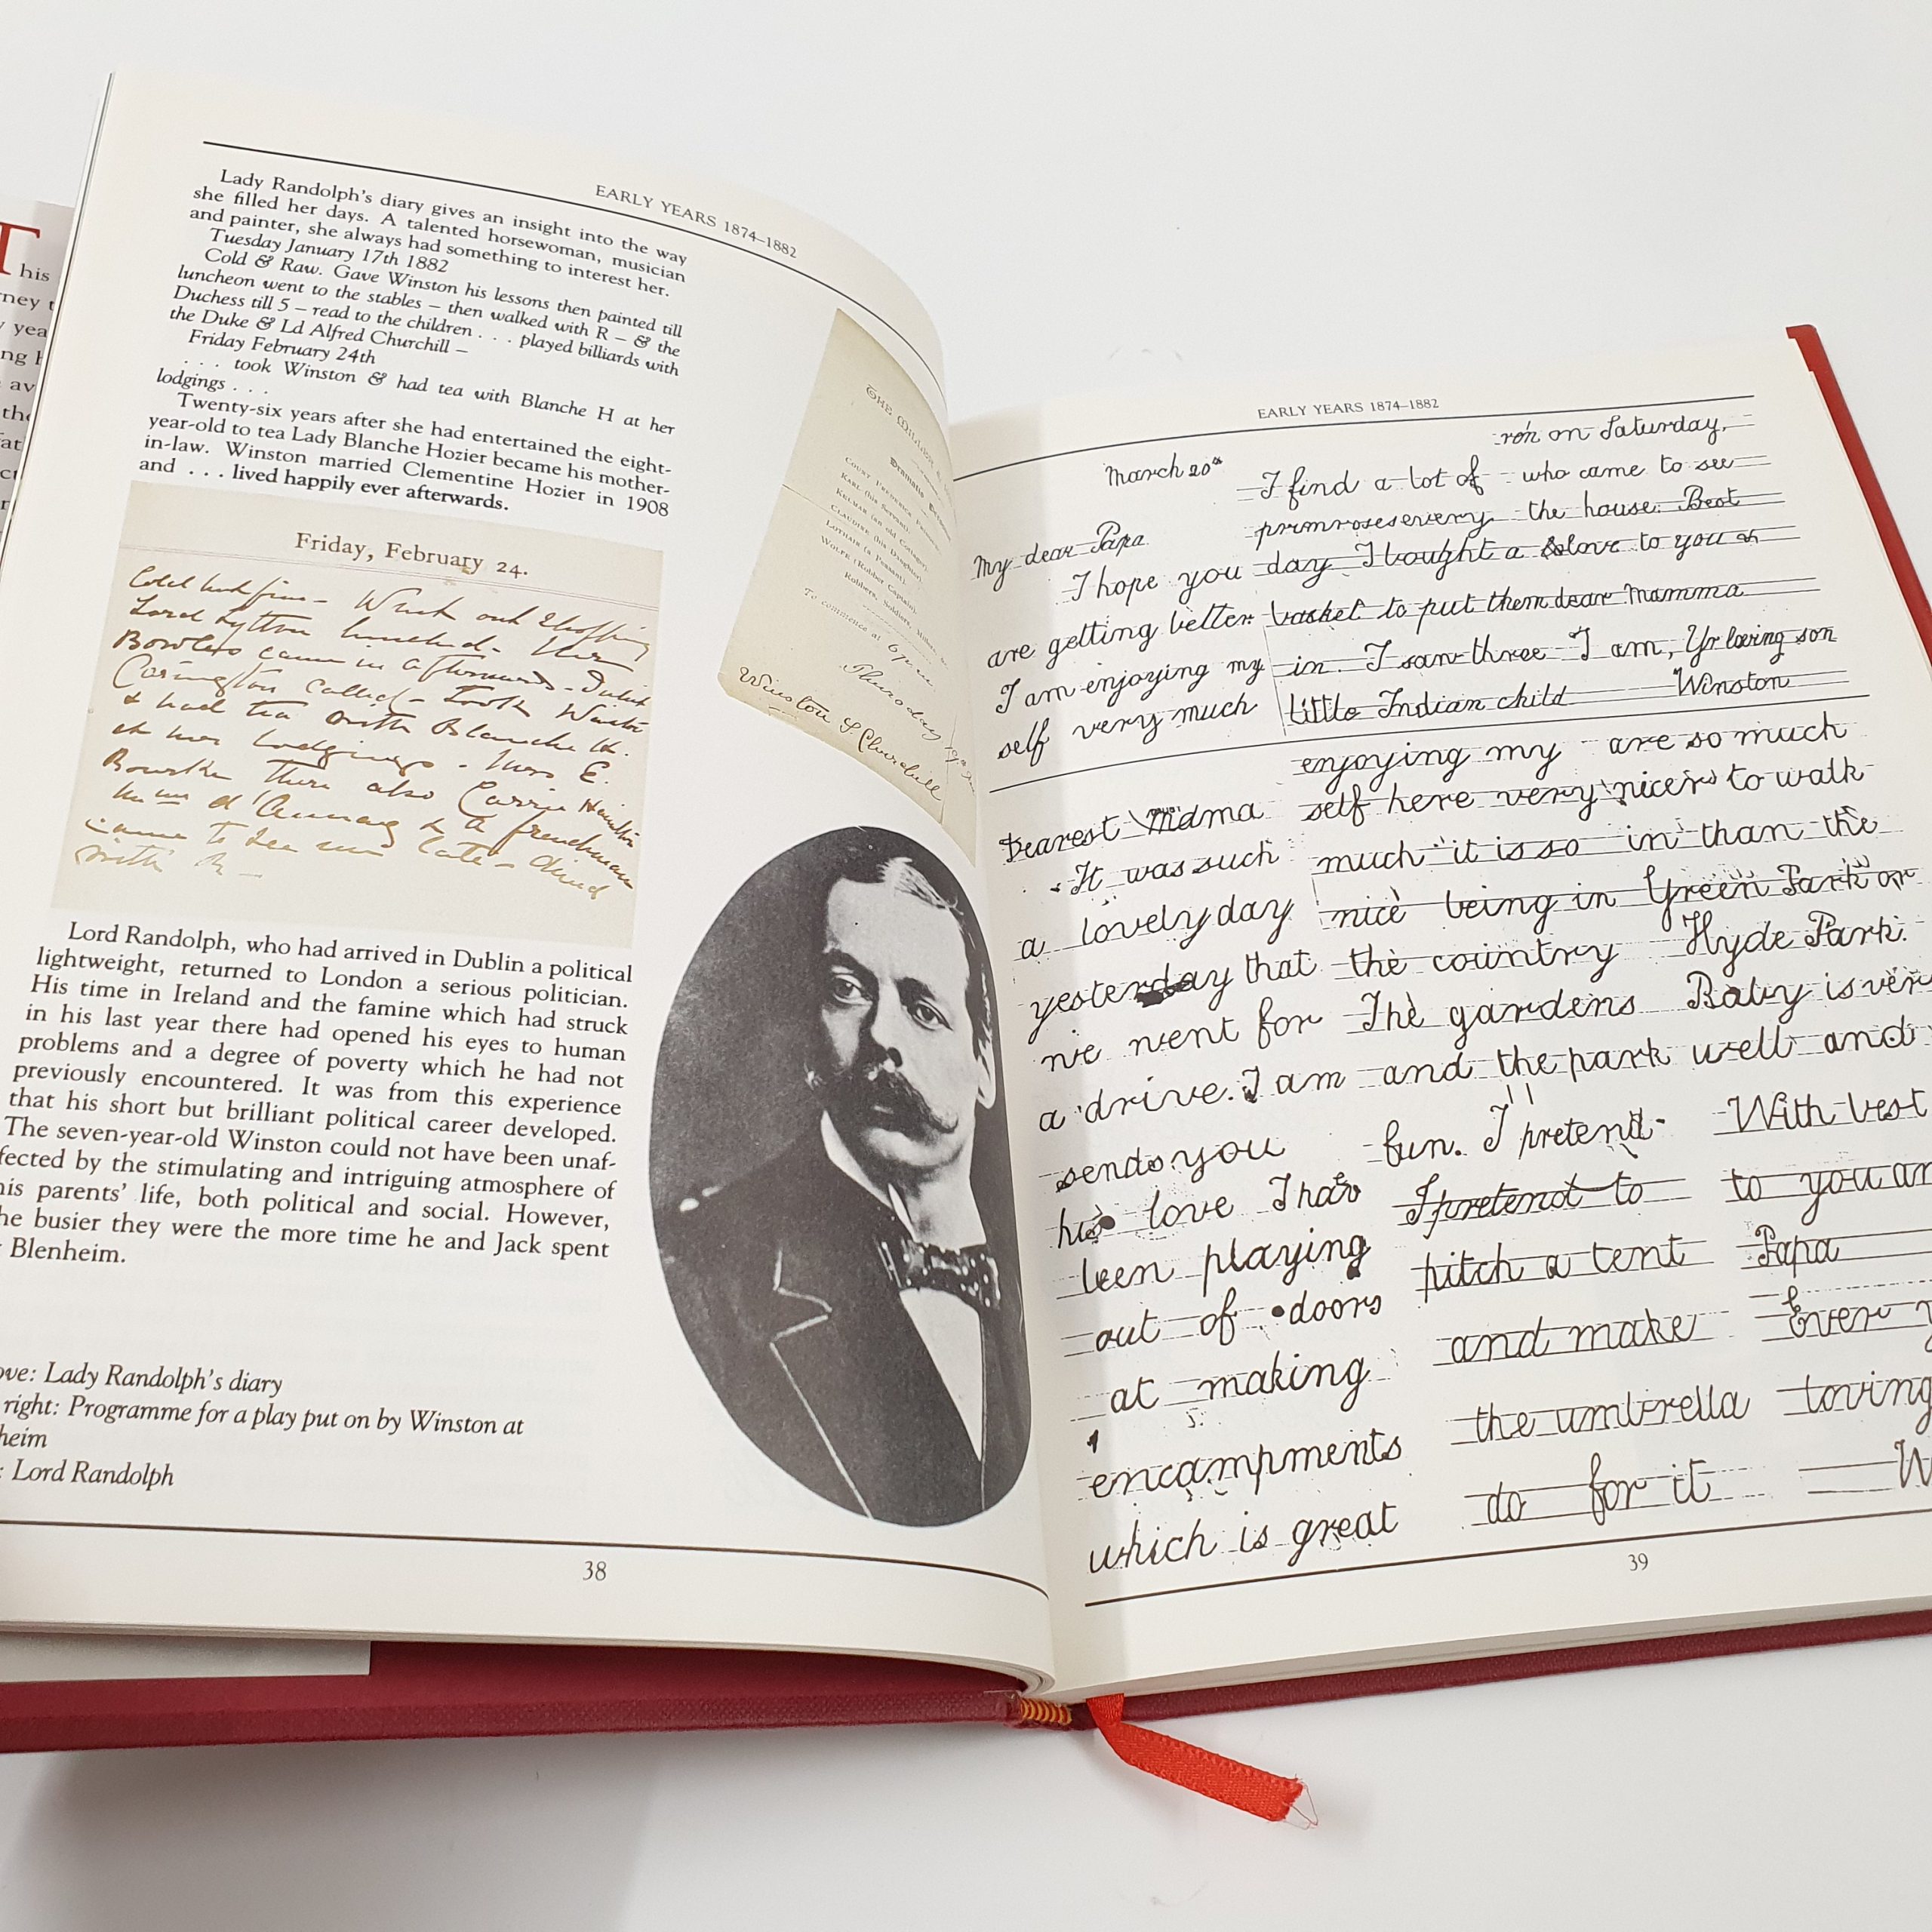 T
his
EARLY YEARS 1874–1882
Lady Randolph's diary gives an insight into the way
she filled her days. A talented horsewoman, musician
and painter, she always had something to interest her.
Tuesday January 17th 1882
Cold & Raw. Gave Winston his lessons then painted till
luncheon went to the stables – then walked with R – & the
Duchess till 5 – read to the children . . . played billiards with
the Duke & Ld Alfred Churchill –
Friday February 24th
. . . took Winston & had tea with Blanche H at her
lodgings . . .
Twenty-six years after she had entertained the eight-
year-old to tea Lady Blanche Hozier became his mother-
in-law. Winston married Clementine Hozier in 1908
and . . . lived happily ever afterwards.
Friday, February 24.
Cold but fine – Went out shopping
Lord Lytton lunched.
Bowles came in afterwards –
Carington called – Took Winston
& had tea with Blanche H.
at her lodgings. Mrs E.
Bourke there also Carrie
& a frenchman
came to see me later – dined
with R –
Lord Randolph, who had arrived in Dublin a political
lightweight, returned to London a serious politician.
His time in Ireland and the famine which had struck
in his last year there had opened his eyes to human
problems and a degree of poverty which he had not
previously encountered. It was from this experience
that his short but brilliant political career developed.
The seven-year-old Winston could not have been unaf-
fected by the stimulating and intriguing atmosphere of
his parents' life, both political and social. However,
the busier they were the more time he and Jack spent
Blenheim.
ove: Lady Randolph's diary
right: Programme for a play put on by Winston at
heim
: Lord Randolph
38
THE MILLER &
Dramatis
COUNT
KARL (his Servant).
(an old Cottager).
CLAUDINE (his Daughter).
LOTHAIR (a Peasant).
WOLFE (Robber Captain).
Robbers, Soldiers,
To commence at 6 p.m.
Thursday
Winston S. Churchill
EARLY YEARS 1874–1882
March 20th
My dear Papa
I hope you
are getting better.
I am enjoying my
self very much
I find a lot of
primroses every
day. I bought a
basket to put them
in. I saw three
little Indian child
ren on Saturday,
who came to see
the house. Best
love to you &
dear Mamma
I am, Yr loving son
Winston
Dearest Mama
It was such
a lovely day
yesterday that
we went for
a drive. I am
enjoying my
self here very
much it is so
nice being in
the country
The gardens
and the park
are so much
nicer to walk
in than the
Green Park or
Hyde Park.
Baby is very
well and
sends you
his love I have
been playing
out of doors
at making
encampments
which is great
fun. I pretend
I pretend to
pitch a tent
and make
the umbrella
do for it
With best
to you an
Papa
Ever
loving
W
39